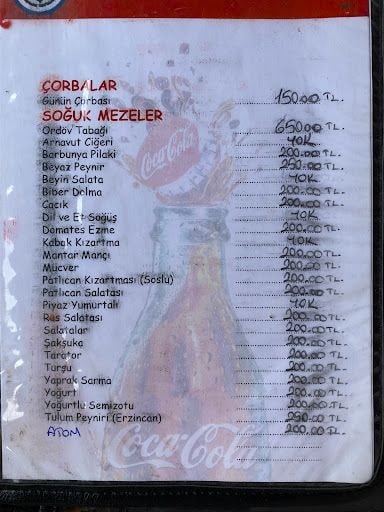 ÇORBALAR
Günün Çorbası 150.00 TL.
SOĞUK MEZELER
Ordöv Tabağı 650.00 TL.
Arnavut Ciğeri YOK
Barbunya Pilaki 200.00 TL.
Beyaz Peynir 250.00 TL.
Beyin Salata YOK
Biber Dolma 200.00 TL.
Cacık 200.00 TL.
Dil ve Et Söğüş YOK
Domates Ezme 200.00 TL.
Kabak Kızartma YOK
Mantar Mançı 200.00 TL.
Mücver 200.00 TL.
Patlıcan Kızartması (Soslu) 200.00 TL.
Patlıcan Salatası 200.00 TL.
Piyaz Yumurtalı YOK
Rus Salatası 200.00 TL.
Salatalar 200.00 TL.
Şakşuka 200.00 TL.
Tarator 200.00 TL.
Turşu 200.00 TL.
Yaprak Sarma 200.00 TL.
Yoğurt 200.00 TL.
Yoğurtlu Semizotu 200.00 TL.
Tulum Peyniri (Erzincan) 250.00 TL.
ATOM 200.00 TL.
Coca-Cola
Coca-Cola